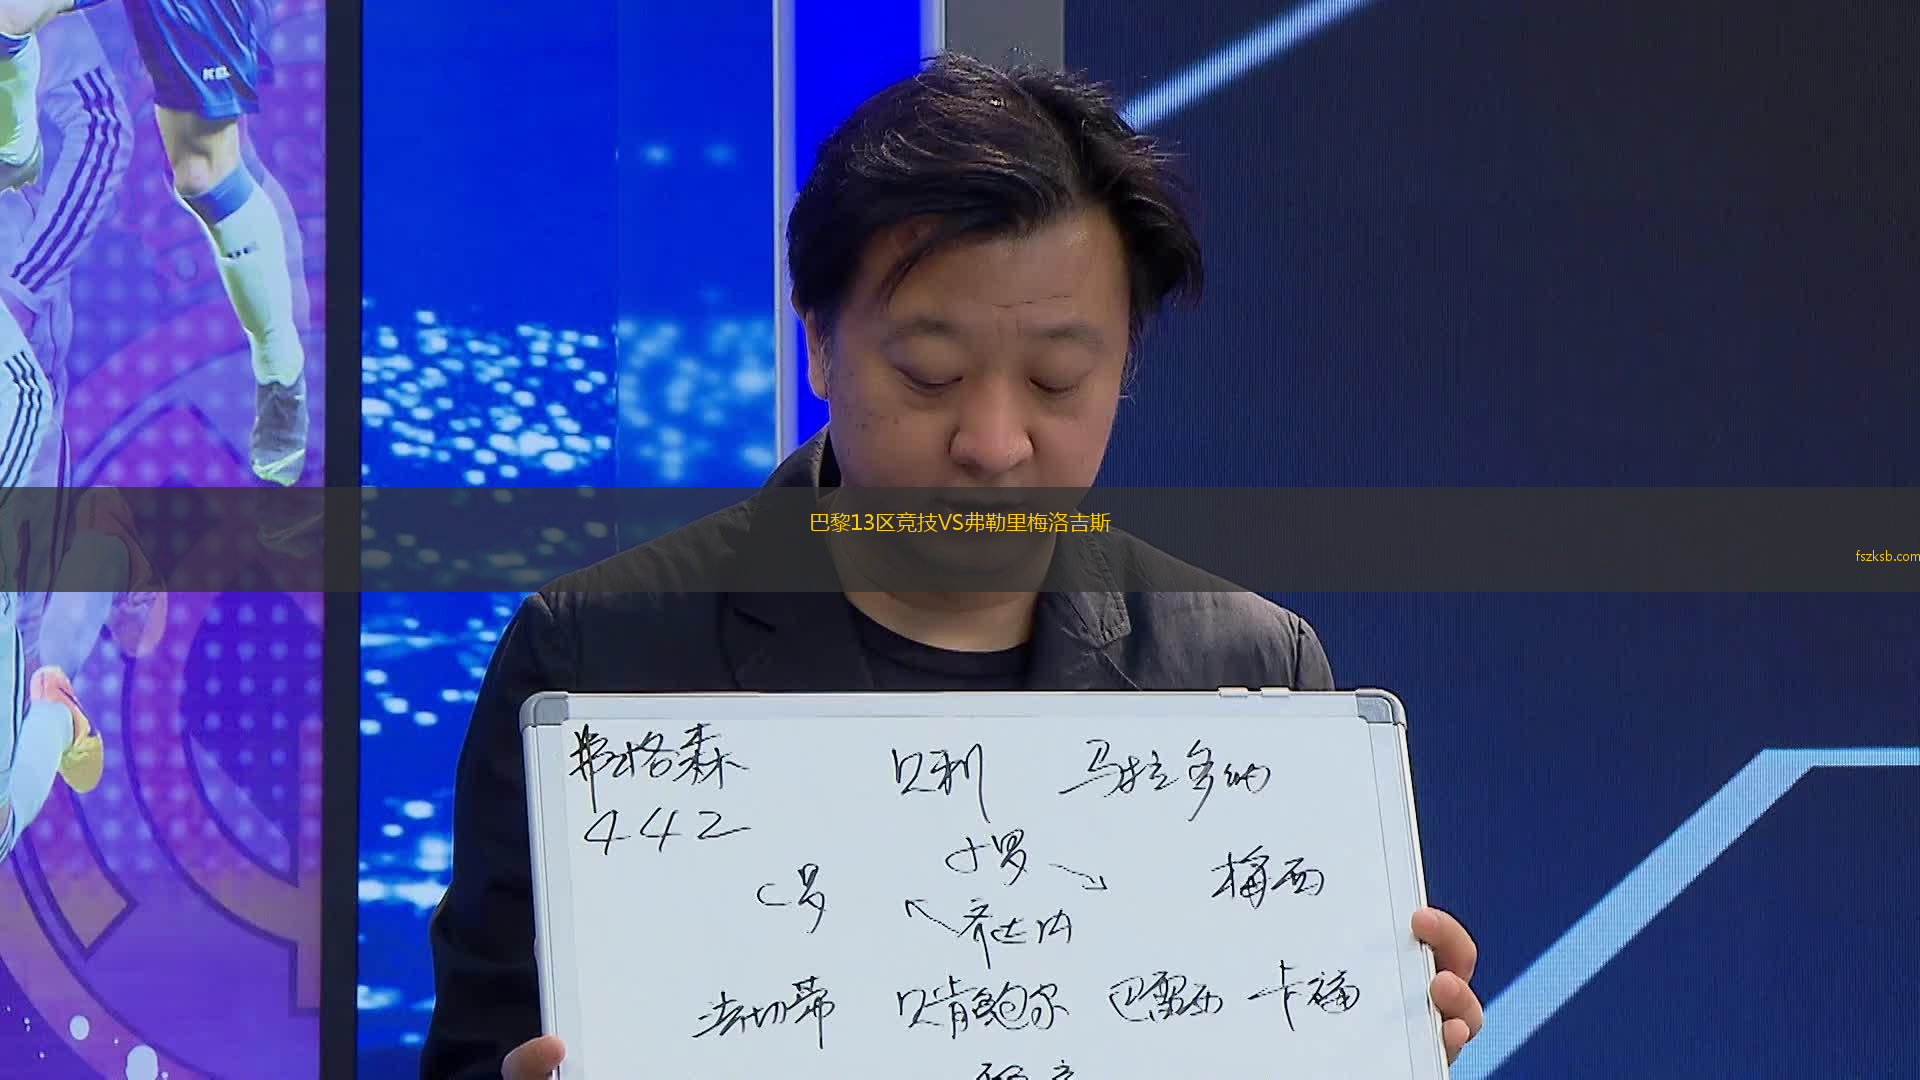 KEL
巴黎13区竞技VS弗勒里梅洛吉斯
fszksb.com
弗格森 贝利 马拉多纳
442
小罗
C罗 梅西
齐达内
法切蒂 贝肯鲍尔 巴雷西 卡福